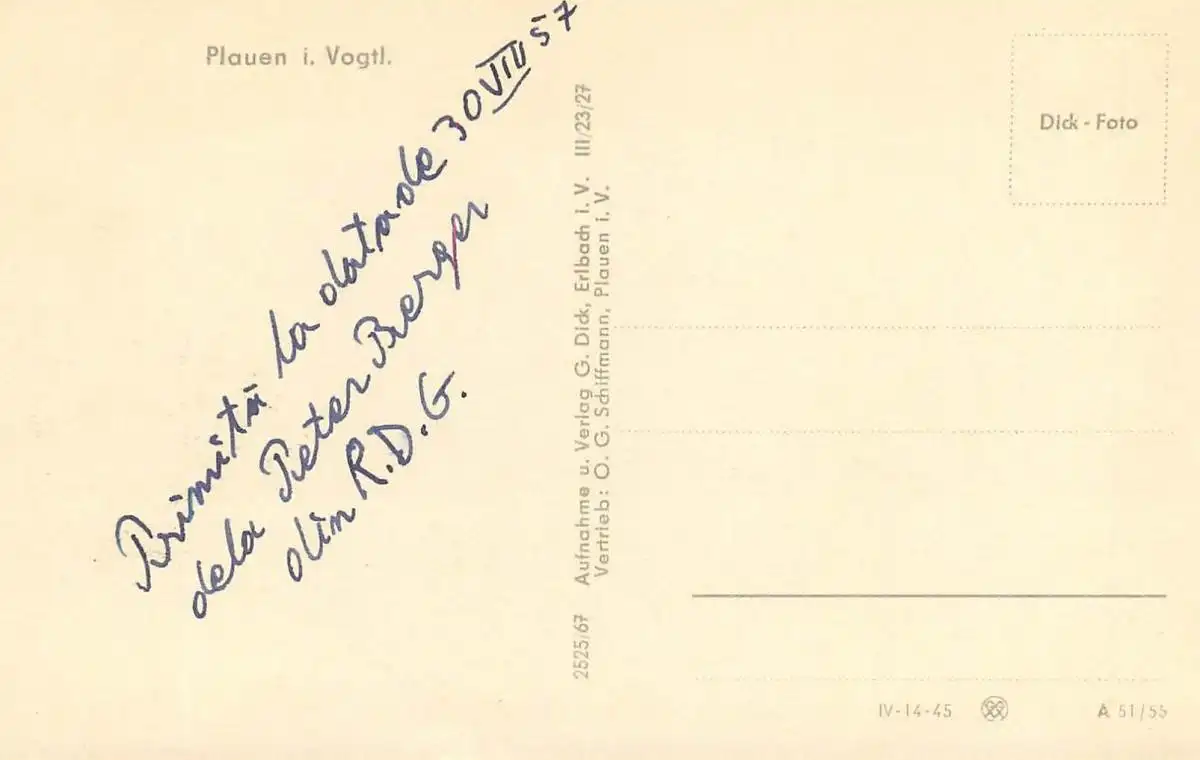 Plauen i. Vogtl.
Primită la data de 30 VIII 57
dela Peter Berger
din R.D.G.
2525/67 Aufnahme u. Verlag G. Dick, Erlbach i. V. III/23/27
Vertrieb: O. G. Schiffmann, Plauen i. V.
Dick - Foto
IV-14-45
A 51/55